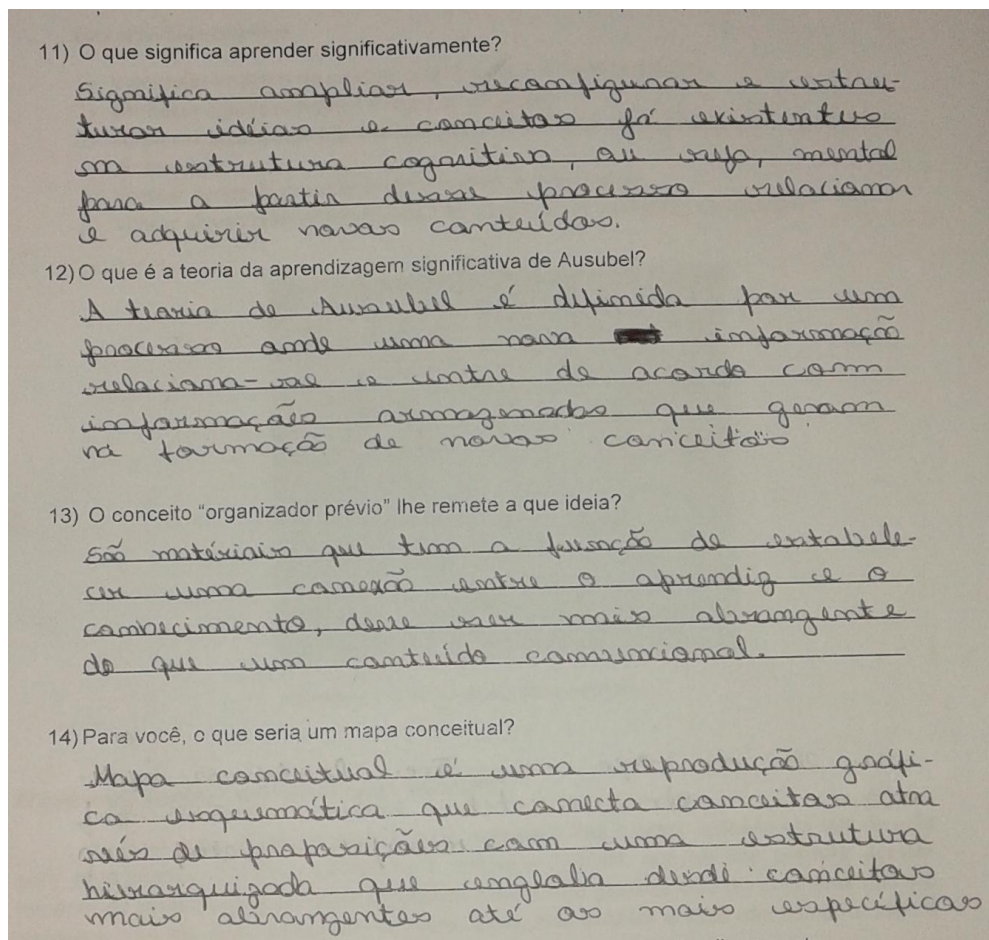 11) O que significa aprender significativamente?
Significa ampliar, reconfigurar e estru-
turar idéias e conceitos já existentes
na estrutura cognitiva, ou seja, mental
para a partir desse processo relacionar
e adquirir novos conteúdos.
12) O que é a teoria da aprendizagem significativa de Ausubel?
A teoria de Ausubel é definida por um
processo onde uma nova informação
relaciona-se e entre de acordo com
informações armazenadas que geram
na formação de novos conceitos
13) O conceito “organizador prévio” lhe remete a que ideia?
São matériais que tem a função de estabele-
cer uma conexão entre o aprendiz e o
conhecimento, deve ser mais abrangente
do que um conteúdo convencional.
14) Para você, o que seria um mapa conceitual?
Mapa conceitual é uma reprodução gráfi-
ca esquemática que conecta conceitos atra
vés de proposições com uma estrutura
hierarquizada que engloba desde conceitos
mais abrangentes até os mais específicos